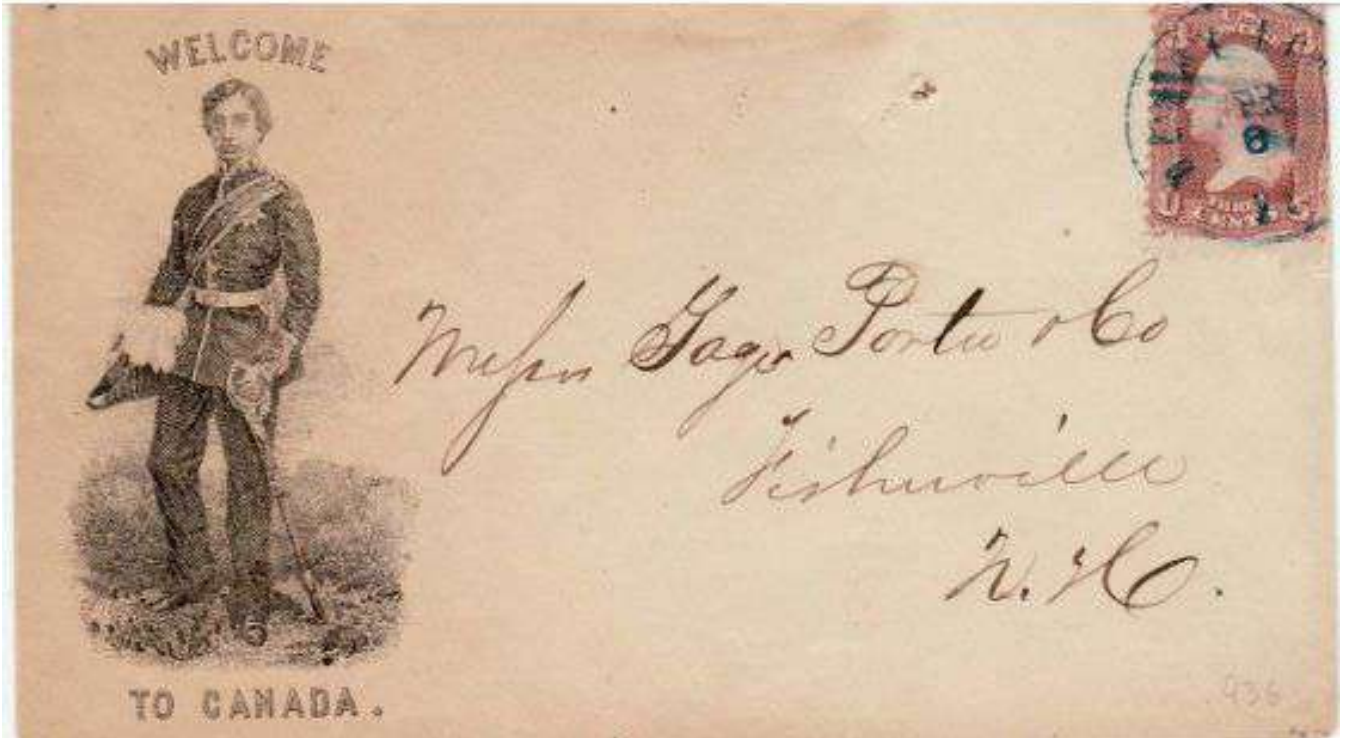 WELCOME
TO CANADA.
Messrs Gage Porter & Co
Fisherville
N. H.
936